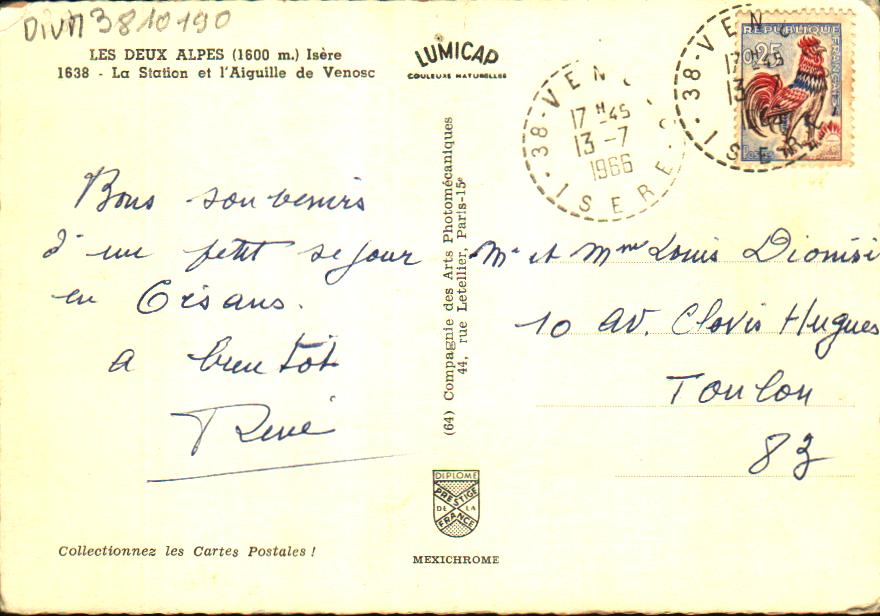 DIVM3810190
LES DEUX ALPES (1600 m.) Isère
1638 - La Station et l'Aiguille de Venosc
LUMICAP
COULEURS NATURELLES
38 - VEN
17 H 45
13 -7
1966
ISERE
38 - VEN
17 H 45
13 -7
ISERE
REPUBLIQUE
FRANÇAISE
0,25
Postes
Bons souvenirs
d'un petit sejour
en Oisans.
a bientôt
René
(64) Compagnie des Arts Photomécaniques
44, rue Letellier, Paris-15e
Mr et Mme Louis Dionisi
10 av. Clovis Hugues
Toulon
83
DIPLOME
PRESTIGE
DE LA
FRANCE
MEXICHROME
Collectionnez les Cartes Postales !